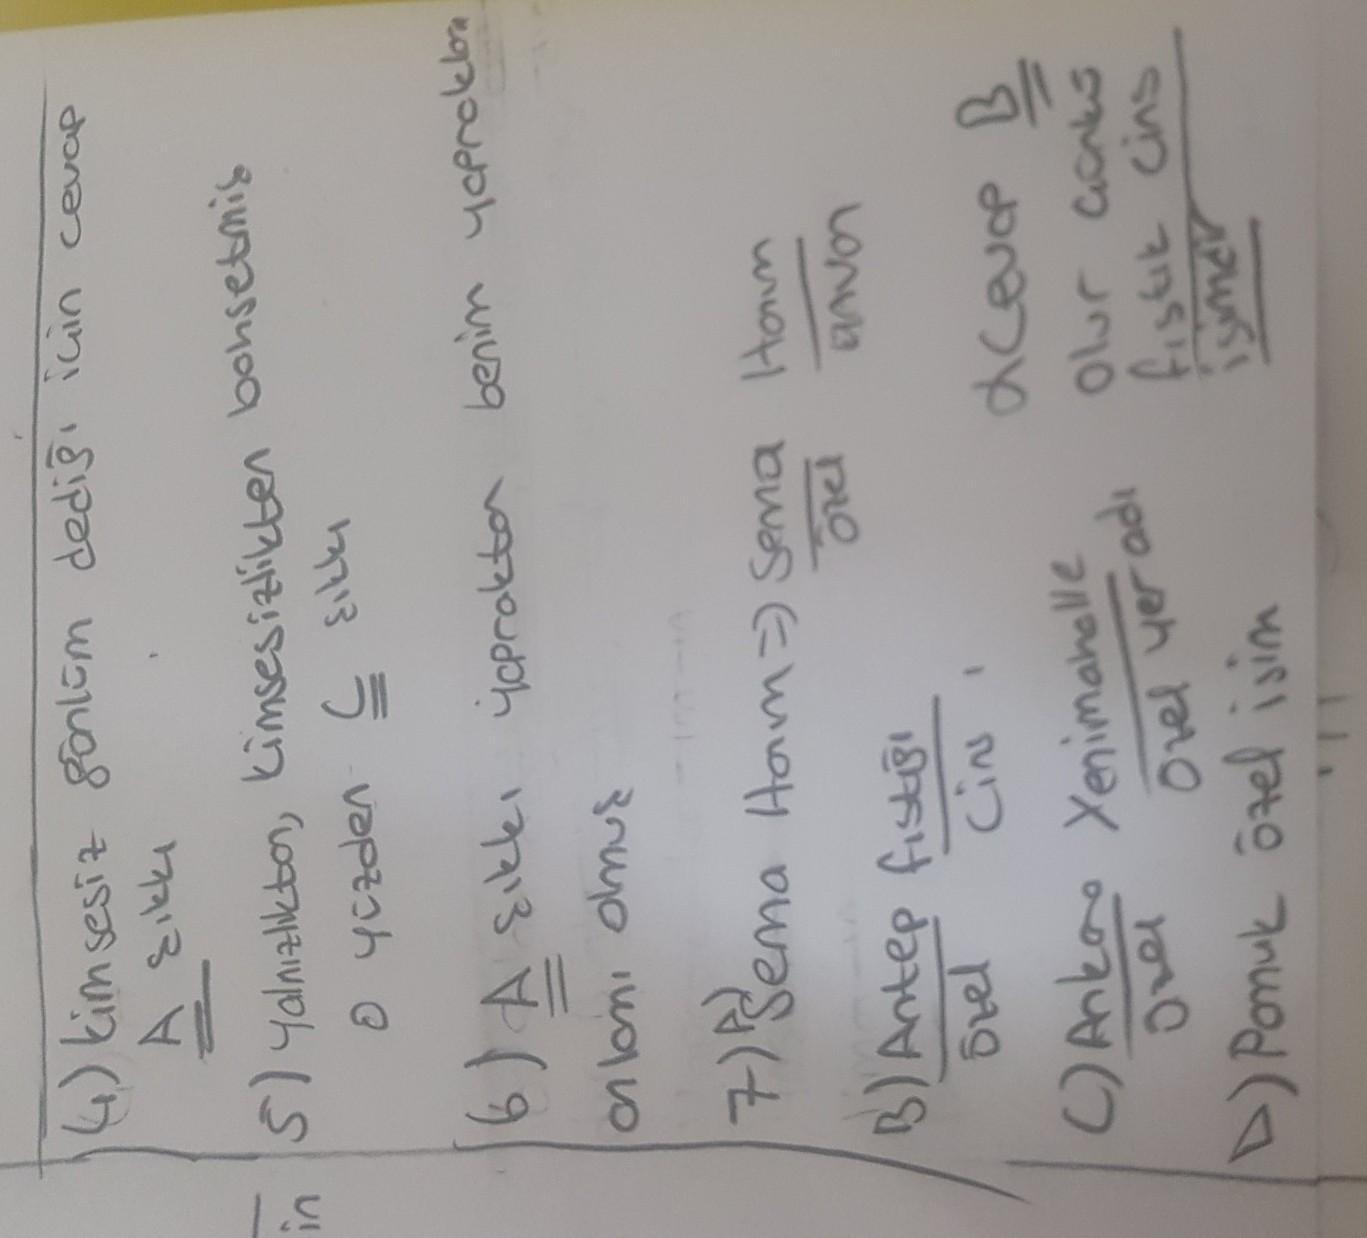 4) kimsesiz gönlüm dediği için cevap
A şıkkı
5) yalnızlıktan, kimsesizlikten bahsetmiş
o yüzden C şıkkı
6) A şıkkı yapraktan benim yapraklar
anlamı olmuş
7) A) Sema Hanım => Sema Hanım
özel unvan
B) Antep fıstığı
özel cins
C) Ankara Yenimahalle
özel özel yer adı
D) Pamuk özel isim
Cevap B
olur çünkü
fıstık cins
isimdir
in